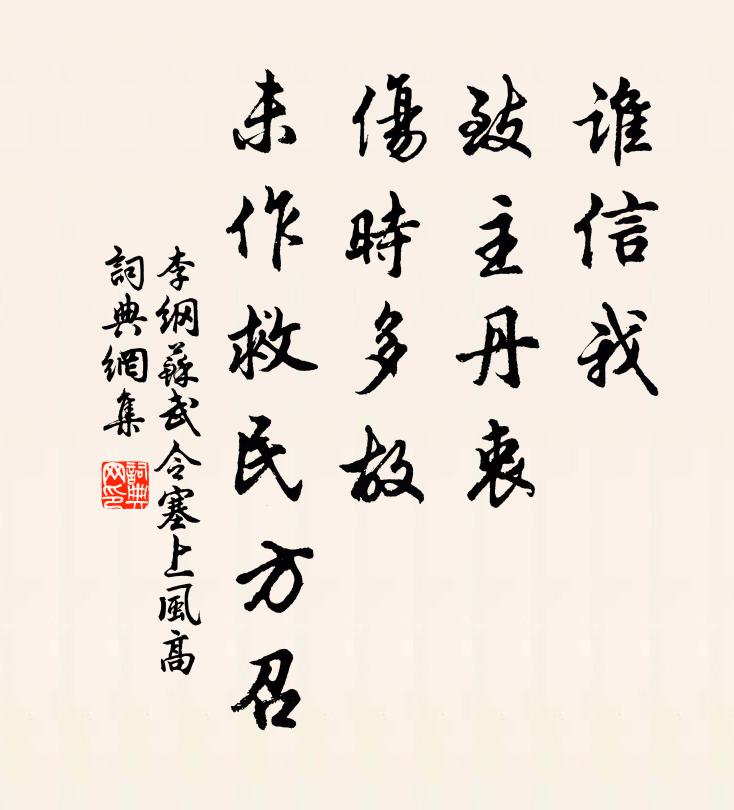 誰信我
致主丹衷
傷時多故
未作救民方召
李綱蘇武令塞上風高
詞典網集
詞典网印